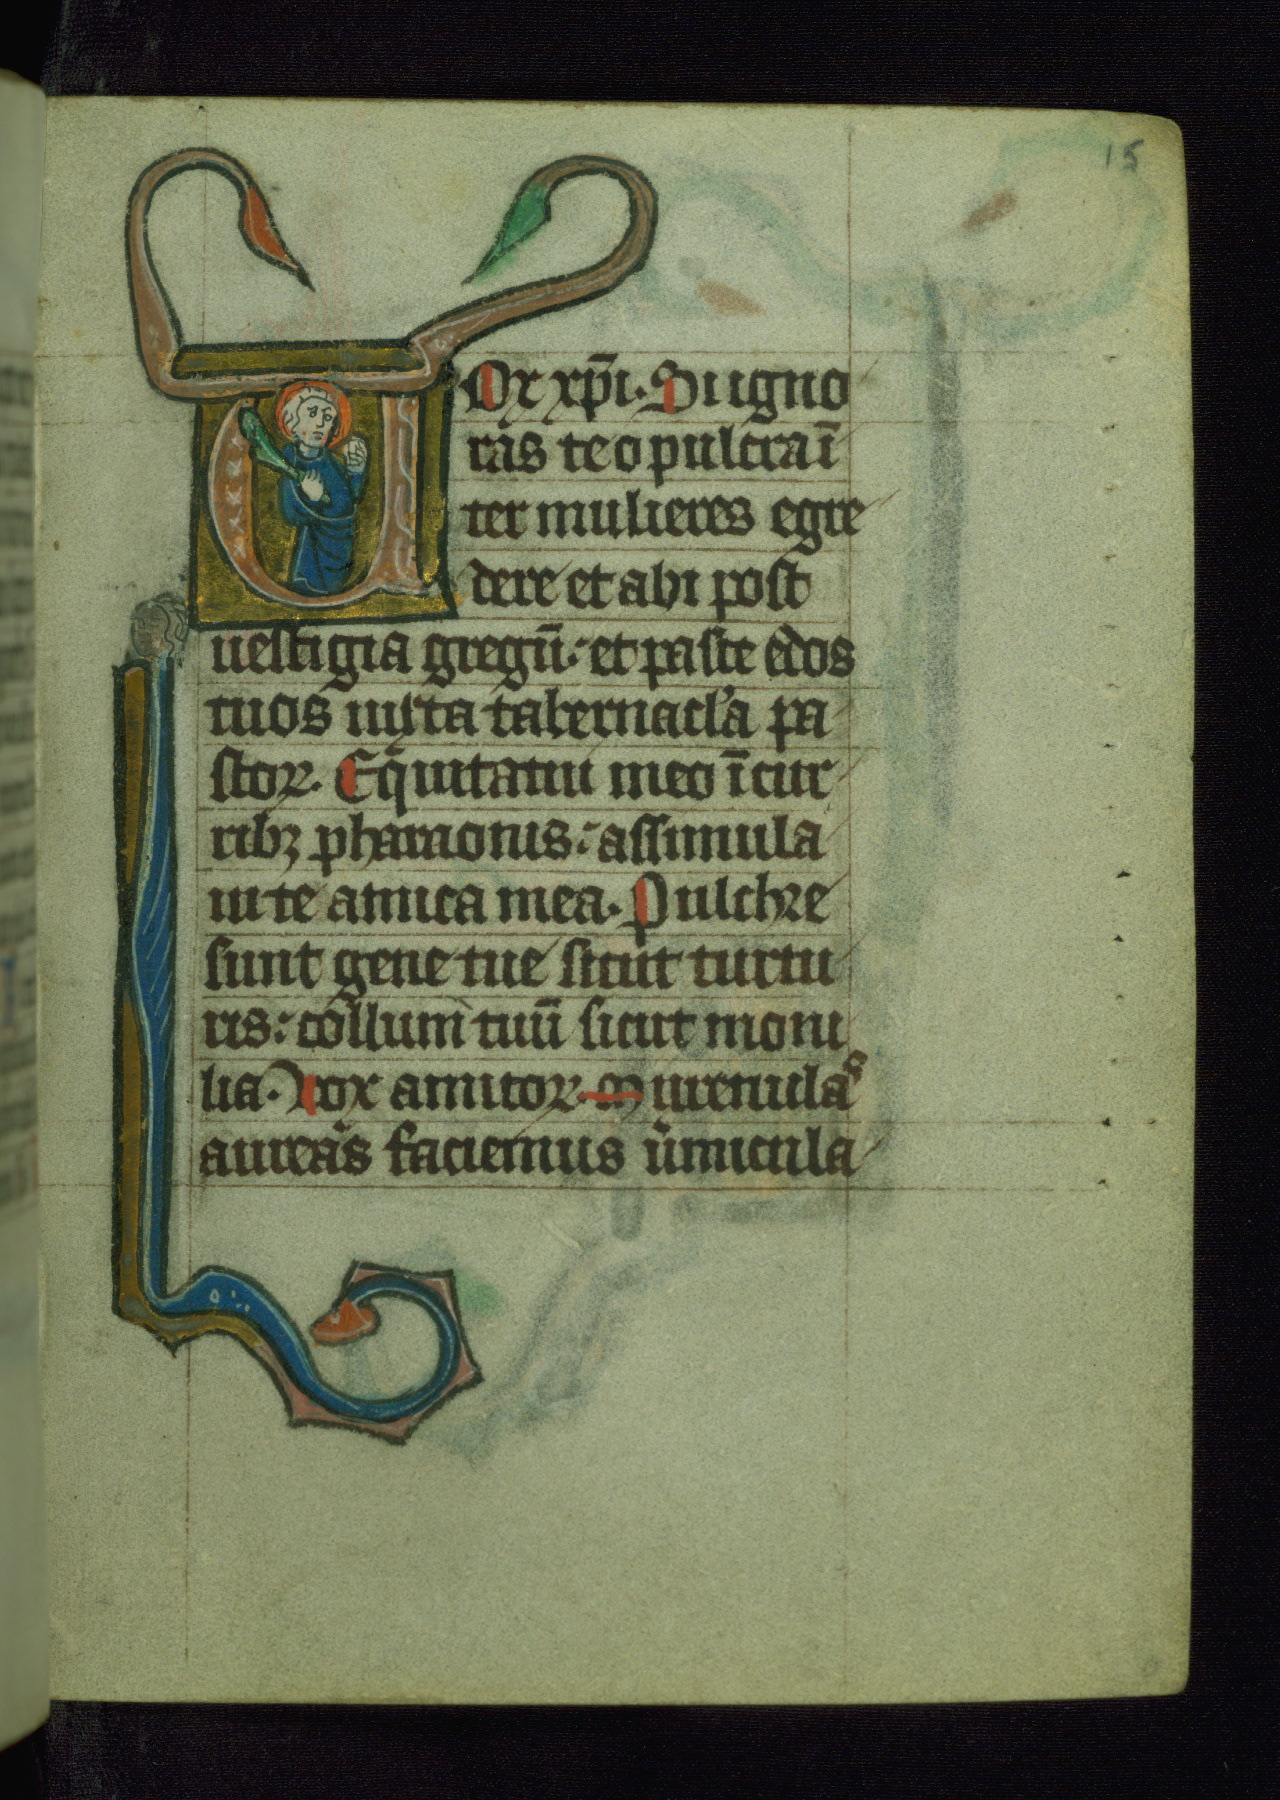 15
VOx xp̄i. Si igno
ras te o pulcra ī
ter mulieres egre
dere et abi post
uestigia gregū: et pasce edos
tuos iuxta tabernacl'a pa
stoꝝ. Eq̄uitatui meo ī cur
ribꝫ pharaonis: assimila
ui te amica mea. Pulchre
sunt gene tue sicut turtu
ris: collum tuū sicut moni
lia. Vox amicoꝝ. Murenulas
aureas faciemus ūmicula